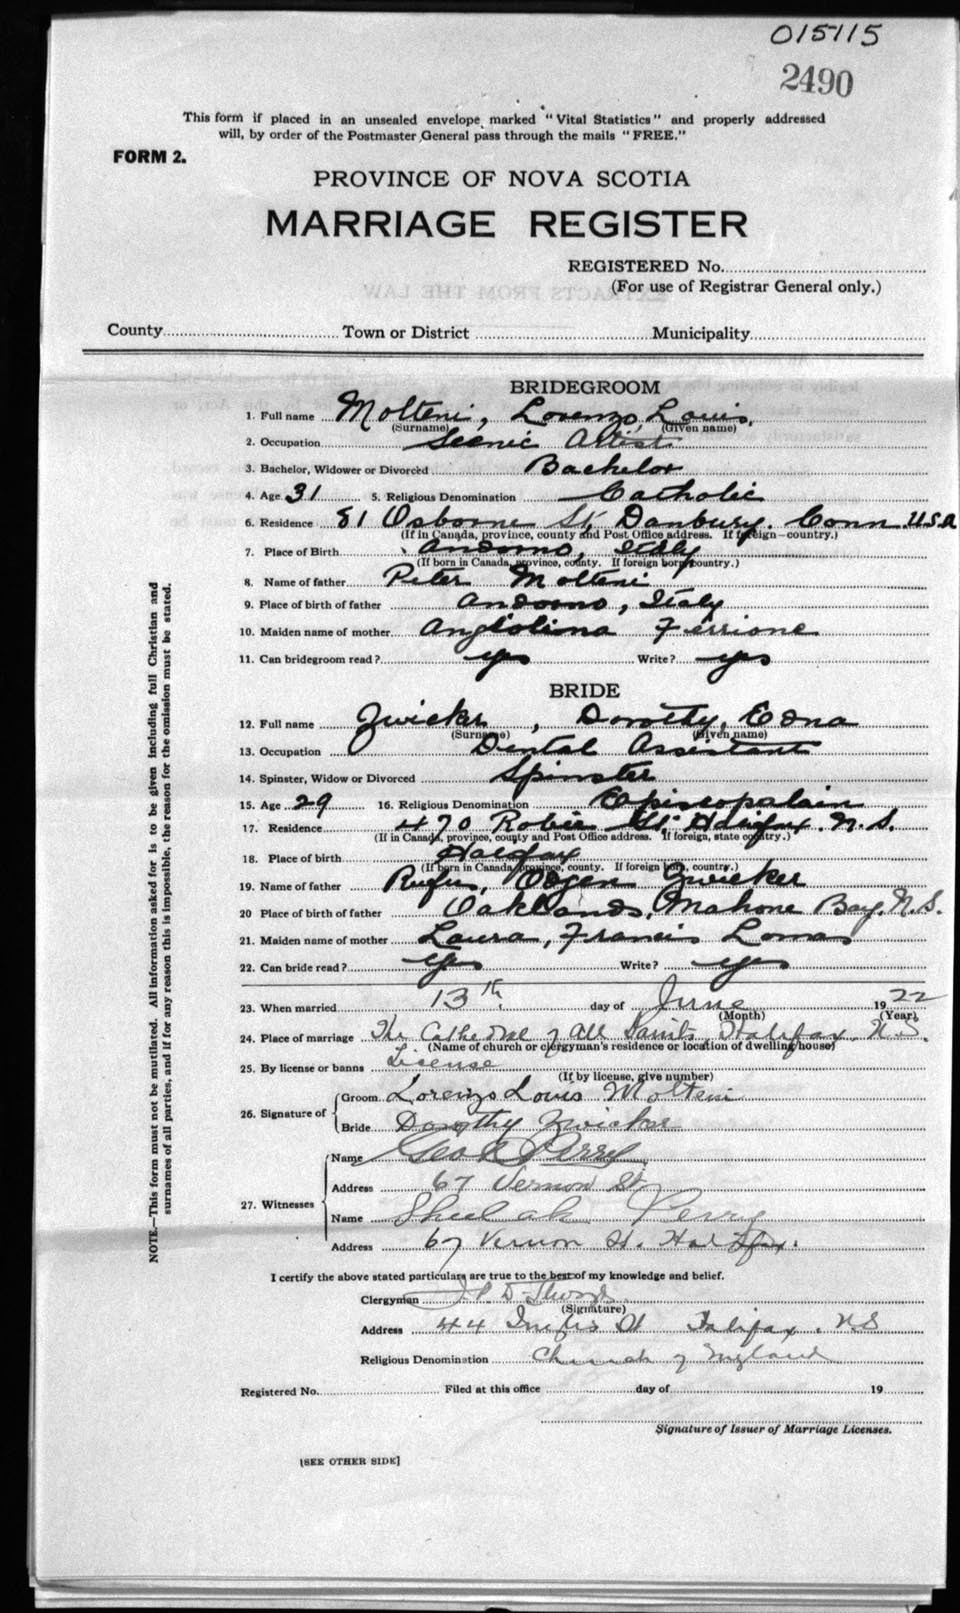 015115
2490
This form if placed in an unsealed envelope marked "Vital Statistics" and properly addressed
will, by order of the Postmaster General pass through the mails "FREE."
FORM 2.
PROVINCE OF NOVA SCOTIA
MARRIAGE REGISTER
REGISTERED No.
(For use of Registrar General only.)
County Town or District Municipality
BRIDEGROOM
1. Full name Molteni, Lorenzo, Louis,
(Surname) (Given name)
2. Occupation Scenic Artist
3. Bachelor, Widower or Divorced Bachelor
4. Age 31 5. Religious Denomination Catholic
6. Residence 81 Osborne St, Danbury. Conn. U.S.A
(If in Canada, province, county and Post Office address. If foreign—country.)
7. Place of Birth Andorno, Italy
(If born in Canada, province, county. If foreign born, country.)
8. Name of father Peter Molteni
9. Place of birth of father Andorno, Italy
10. Maiden name of mother Angiolina Ferrione
11. Can bridegroom read? yes Write? yes
BRIDE
12. Full name Zwicker, Dorothy, Edna
(Surname) (Given name)
13. Occupation Dental Assistant
14. Spinster, Widow or Divorced Spinster
15. Age 29 16. Religious Denomination Episcopalain
17. Residence 470 Robie St Halifax. N.S.
(If in Canada, province, county and Post Office address. If foreign, state country.)
18. Place of birth Halifax
(If born in Canada, province, county. If foreign born, country.)
19. Name of father Rufus, Odgen Zwicker
20 Place of birth of father Oaklands, Mahone Bay, N.S.
21. Maiden name of mother Laura, Francis Lomas
22. Can bride read? Yes Write? yes
23. When married 13th. day of June 1922
(Month) (Year)
24. Place of marriage The Cathedral of All Saints, Halifax, N.S.
(Name of church or clergyman's residence or location of dwelling house)
25. By license or banns License
(If by license, give number)
26. Signature of Groom Lorenzo Louis Molteni
Bride Dorothy Zwicker
27. Witnesses Name Perry
Address 67 Vernon St
Name Sheelah Perry
Address 67 Vernon St. Halifax.
I certify the above stated particulars are true to the best of my knowledge and belief.
Clergyman
(Signature)
Address 44 St Halifax. N.S
Religious Denomination Church of England
Registered No. Filed at this office day of 19
Signature of Issuer of Marriage Licenses.
[SEE OTHER SIDE]
NOTE.—This form must not be mutilated. All informations asked for is to be given including full Christian and
surnames of all parties, and if for any reason this is impossible, the reason for the omission must be stated.